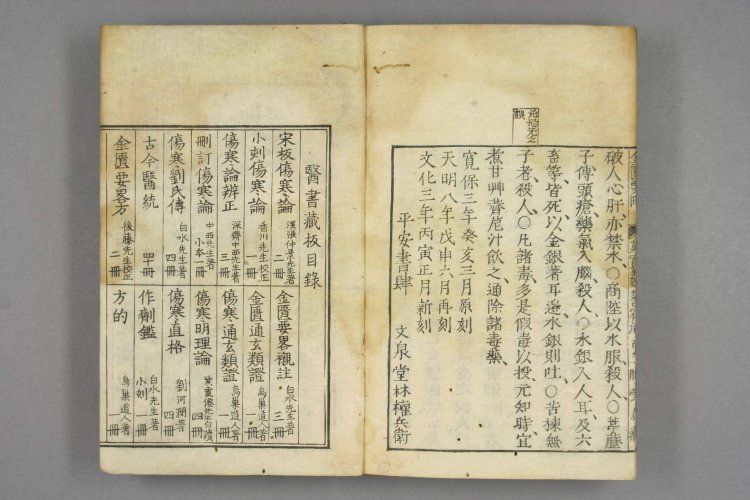 破人心肝亦禁水○商陸以水服殺人○葶藶
子傳頭瘡藥氣入腦殺人○水銀入人耳及六
畜等皆死以金銀著耳邊水銀則吐○苦楝無
子者殺人○凡諸毒多是假毒以投元知時宜
煮甘艸薺苨汁飲之通除諸毒藥
寛保三年癸亥三月原刻
天明八年戊申六月再刻
文化三年丙寅正月新刻
平安書肆 文泉堂林權兵衛
醫書藏板目錄
宋板傷寒論 漢張仲景先生著 二冊
小刻傷寒論 香川先生校正 一冊
傷寒論辨正 深齋中西先生著 三冊
刪訂傷寒論 中西先生著 小本一冊
傷寒劉氏傳 白水先生著 四冊
古今醫統 四十冊
金匱要畧方 後藤先生校正 二冊
金匱要畧襯註 白水先生著 三冊
金匱通玄類證 烏巢道人著 一冊
傷寒通玄類證 烏巢道人著 一冊
傷寒明理論 四冊
傷寒直格 劉河澗著 四冊
作劑鑑 白水先生著 小刻一冊
方的 烏巢道人著 一冊